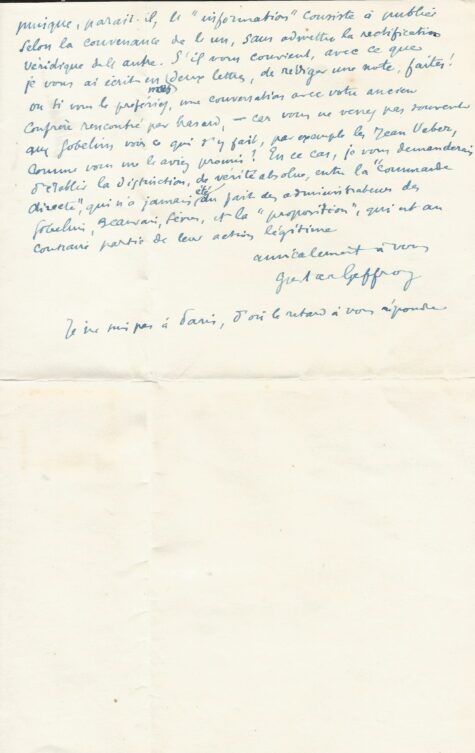 puisque, parait-il, l' "information" consiste à publier
selon la convenance de l'un, sans admettre la rectification
véridique de l'autre. S'il vous convient, avec ce que
je vous ai écrit en mes deux lettres, de rédiger une note, faites!
ou si vous le préférez, une conversation avec votre ancien
confrère rencontré par hasard, — car vous ne venez pas souvent
aux Gobelins voir ce qui s'y fait, par exemple les Jean Veber,
comme vous me l'aviez promis! En ce cas, je vous demanderais
d'établir la distinction, de vérité absolue, entre la "commande
directe", qui n'a jamais été du fait des administrateurs des
Gobelins, Beauvais, Sèvres, et la "proposition", qui est au
contraire partie de leur action légitime
amicalement à vous
Gustave Geffroy
Je ne suis pas à Paris, d'où le retard à vous répondre